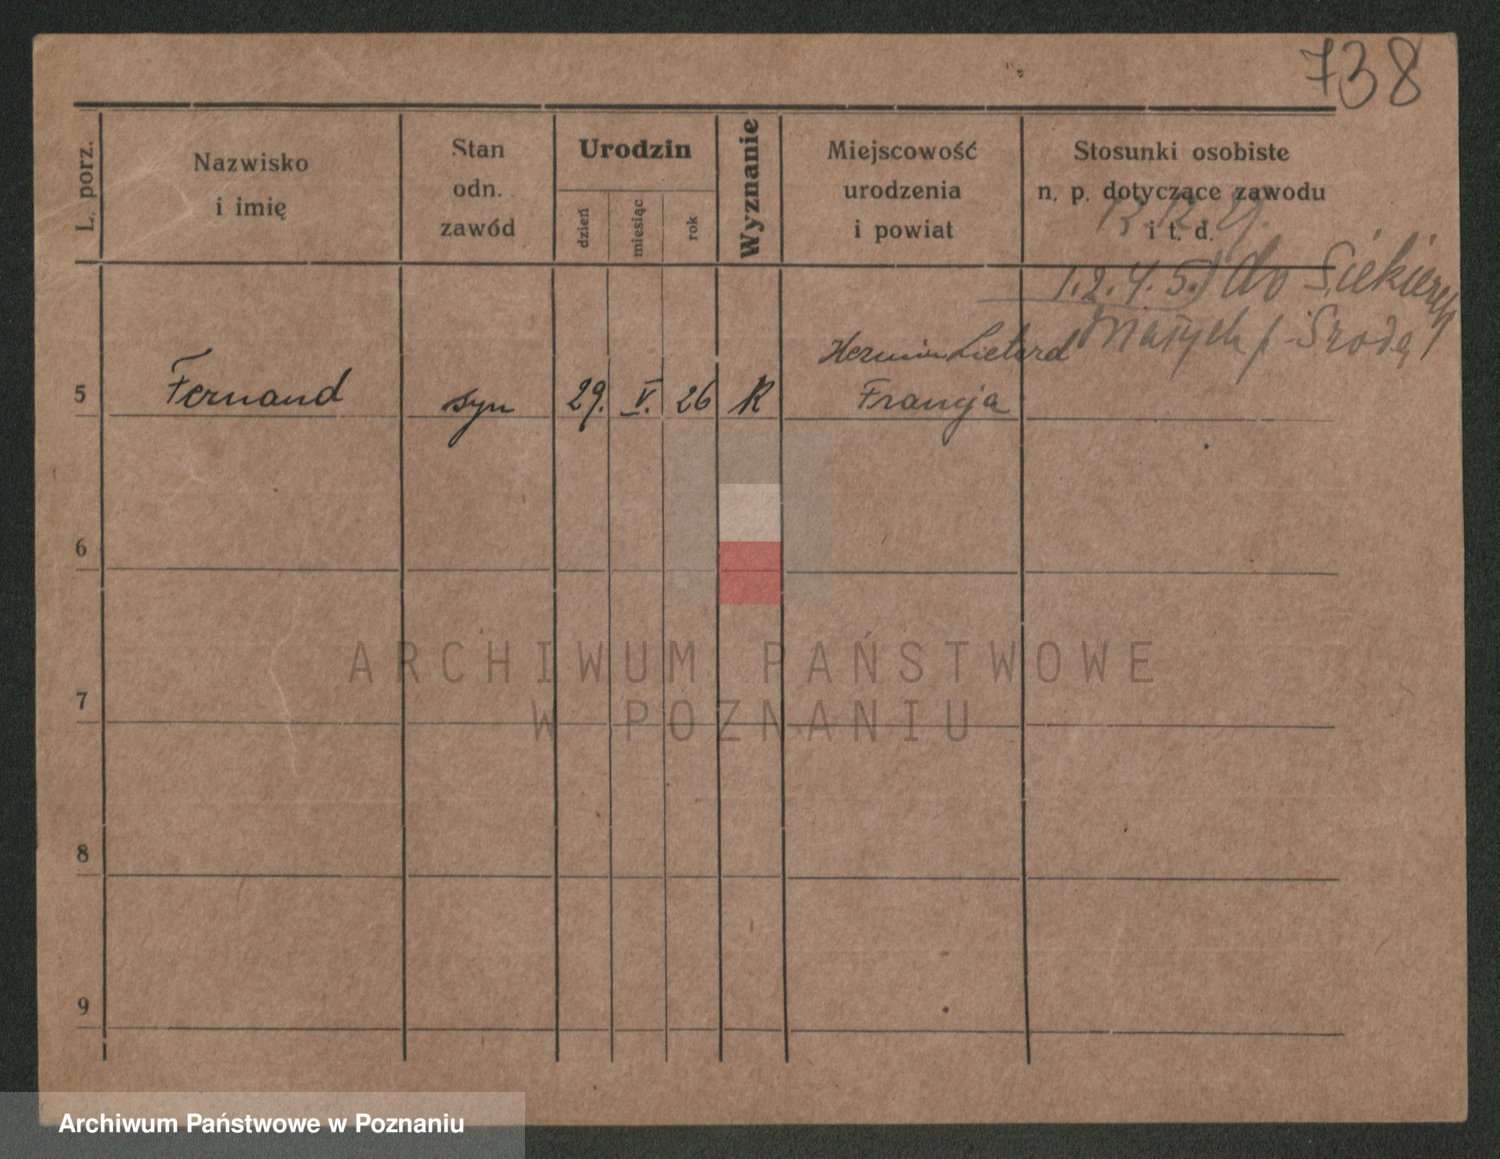 738
L. porz.
Nazwisko
i imię
Stan
odn.
zawód
Urodzin
dzień
miesiąc
rok
Wyznanie
Miejscowość
urodzenia
i powiat
Stosunki osobiste
n. p. dotyczące zawodu
i t. d.
13.12.29.
1.2.4.5.) do Siekierek
Małych p. Środę
5
Fernand
syn
29.
V.
26
R
Lietard
Francja
6
7
8
9
ARCHIWUM PAŃSTWOWE
W POZNANIU
Archiwum Państwowe w Poznaniu